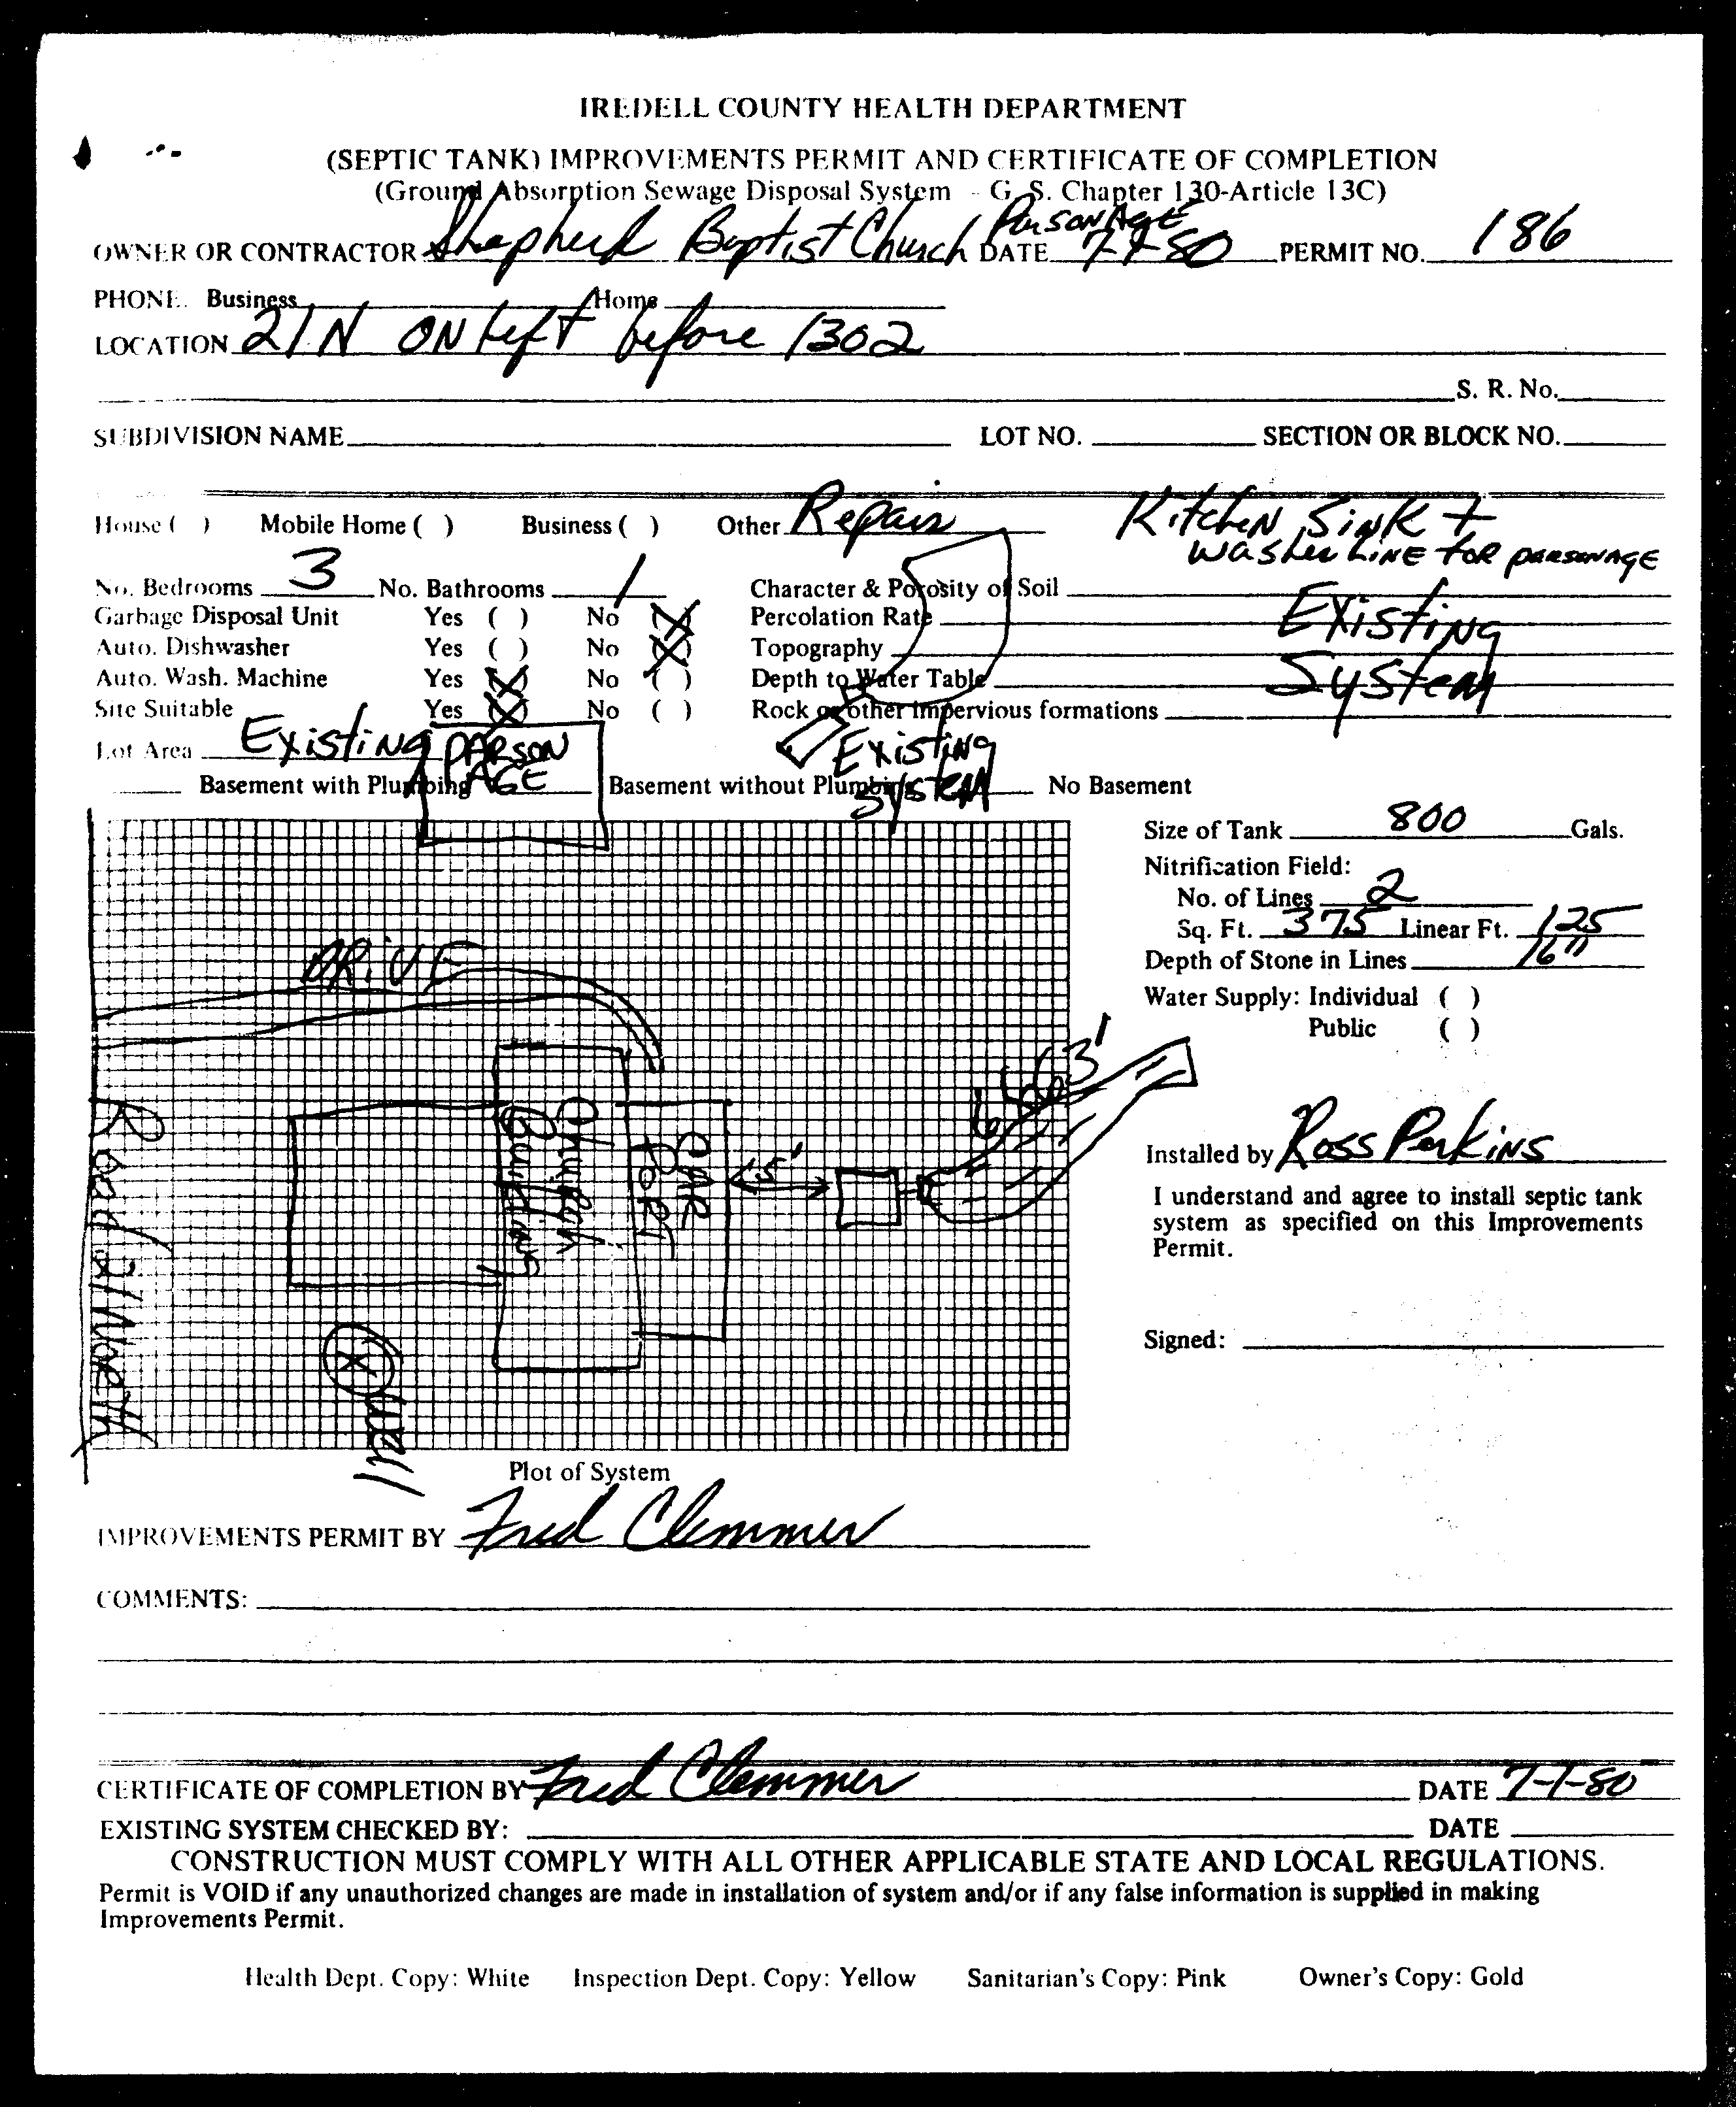 IREDELL COUNTY HEALTH DEPARTMENT
(SEPTIC TANK) IMPROVEMENTS PERMIT AND CERTIFICATE OF COMPLETION
(Ground Absorption Sewage Disposal System - G. S. Chapter 130-Article 13C)
OWNER OR CONTRACTOR Shepherd Baptist Church Parsonage DATE 7-7-80 PERMIT NO. 186
PHONE: Business Home
LOCATION 21 N ON Left before 1302
S. R. No.
SUBDIVISION NAME LOT NO. SECTION OR BLOCK NO.
House ( ) Mobile Home ( ) Business ( ) Other Repair Kitchen Sink +
Washer LiNE FOR parsonAGE
No. Bedrooms 3 No. Bathrooms 1 Character & Porosity of Soil
Garbage Disposal Unit Yes ( ) No (X) Percolation Rate Existing
Auto. Dishwasher Yes ( ) No (X) Topography
Auto. Wash. Machine Yes (X) No ( ) Depth to Water Table System
Site Suitable Yes (X) No ( ) Rock or other impervious formations
Lot Area Existing PARSON Existing
Basement with Plumbing AGE Basement without Plumbing SYSTEM No Basement
Size of Tank 800 Gals.
Nitrification Field:
No. of Lines 2
Sq. Ft. 375 Linear Ft. 125
Depth of Stone in Lines 16"
Water Supply: Individual ( )
Public ( )
DRIVE
63'
Church
Building
CAR
PORT
15'
Road 21 North
X Well
Installed by Ross Perkins
I understand and agree to install septic tank
system as specified on this Improvements
Permit.
Signed:
Plot of System
IMPROVEMENTS PERMIT BY Fred Clemmer
COMMENTS:
CERTIFICATE OF COMPLETION BY Fred Clemmer DATE 7-7-80
EXISTING SYSTEM CHECKED BY: DATE
CONSTRUCTION MUST COMPLY WITH ALL OTHER APPLICABLE STATE AND LOCAL REGULATIONS.
Permit is VOID if any unauthorized changes are made in installation of system and/or if any false information is supplied in making
Improvements Permit.
Health Dept. Copy: White Inspection Dept. Copy: Yellow Sanitarian's Copy: Pink Owner's Copy: Gold